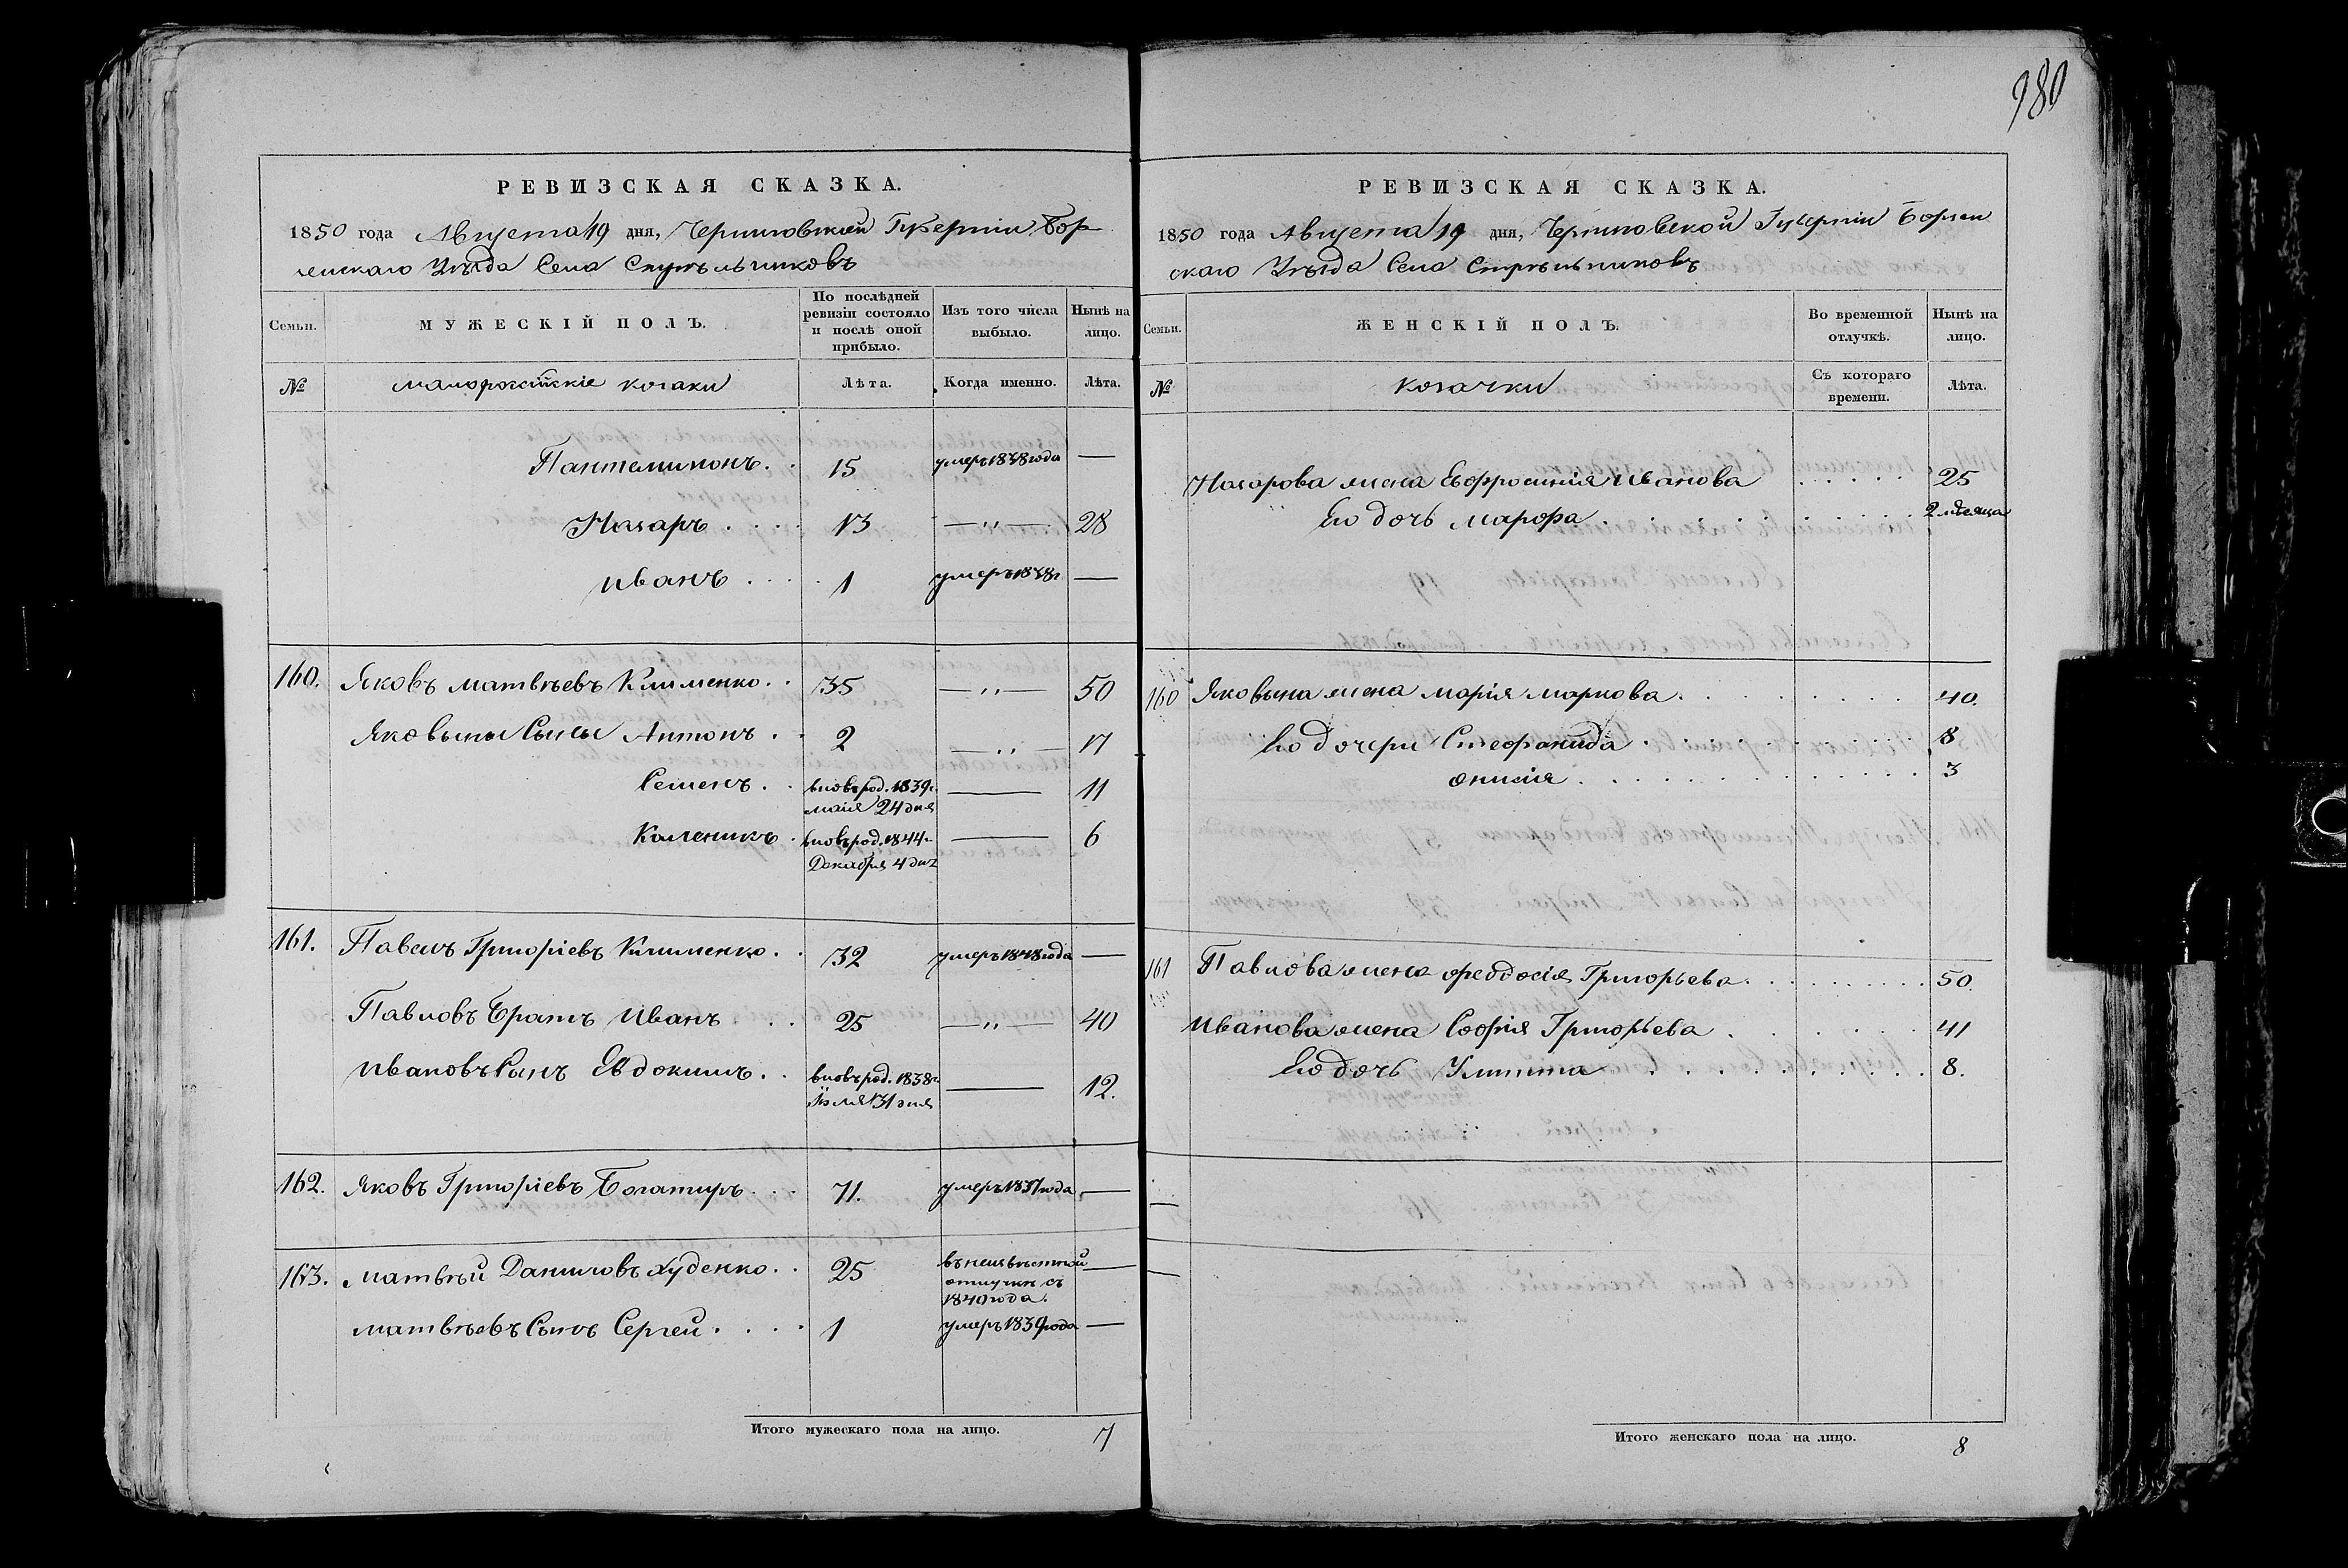 980
РЕВИЗСКАЯ СКАЗКА.
1850 года Августа 19 дня, Черниговской Губерніи Бор
зенскаго Уѣзда Села Стрѣльниковъ
Семьи.
МУЖЕСКІЙ ПОЛЪ.
По послѣдней ревизіи состояло и послѣ оной прибыло.
Изъ того числа выбыло.
Нынѣ на лицо.
№
малороссійскіе козаки
Лѣта.
Когда именно.
Лѣта.
Пантелимонъ . . 15 умеръ 1838 года —
Назаръ . . . . 13 — „ — 28
Иванъ . . . . 1 умеръ 1838 г —
160. Яковъ Матвѣевъ Клименко . . 35 — „ — 50
Яковыны Сыны Антонъ . . 2 — „ — 17
Семенъ . . вновь род. 1839 г. — 11
маія 24 дня
Каленикъ . вновь род. 1844 г. — 6
Декабря 4 дня
161. Павелъ Григоріевъ Клименко . . 32 умеръ 1848 года —
Павловъ Братъ Иванъ . . . 25 — „ — 40
Ивановъ Сынъ Евдокимъ . . вновь род. 1838 г. — 12.
31 дня
162. Яковъ Григоріевъ Богатырь . . . 71. умеръ 1837 года —
163. Матвѣй Даниловъ Худенко . . 25 въ неизвѣстной —
отлучкѣ съ
1840 года.
Матвѣевъ Сынъ Сергей . . . . 1 умеръ 1839 года —
Итого мужескаго пола на лицо. 7
РЕВИЗСКАЯ СКАЗКА.
1850 года Августа 19 дня, Черниговской Губерніи Борзен
скаго Уѣзда Села Стрѣльниковъ
Семьи.
ЖЕНСКІЙ ПОЛЪ.
Во временной отлучкѣ.
Нынѣ на лицо.
№
козачки
Съ котораго времени.
Лѣта.
Назарова жена Евфросинія Иванова . . . . . 25
Его дочь Марфа . . . . . . . 2 мѣсяца
160 Яковына жена Марія Маркова . . . . . . . 40.
Его дочери Стефанида . . . . . . . . . 8
Онисія . . . . . . . . . . . 3
161 Павлова жена Феодосія Григорьева . . . . . . . . 50.
Иванова жена Софія Григорьева . . . . . 41
Его дочь Улита . . . . . . . . 8.
—
—
Итого женскаго пола на лицо. 8